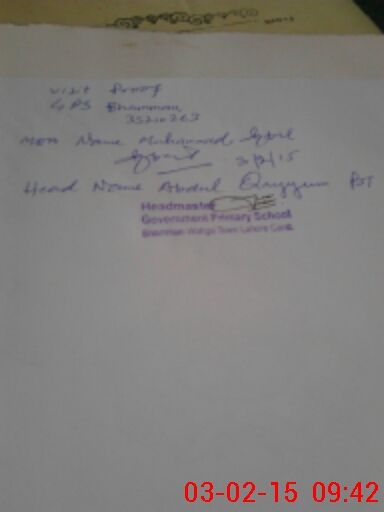 visit Proof
GPS Bhamman
35210263
MEA Name Muhammad
3/2/15
Head Name Abdul Qayyum PST
Headmaster
Government Primary School
Bhamman Wagha Town Lahore Cantt.
03-02-15 09:42